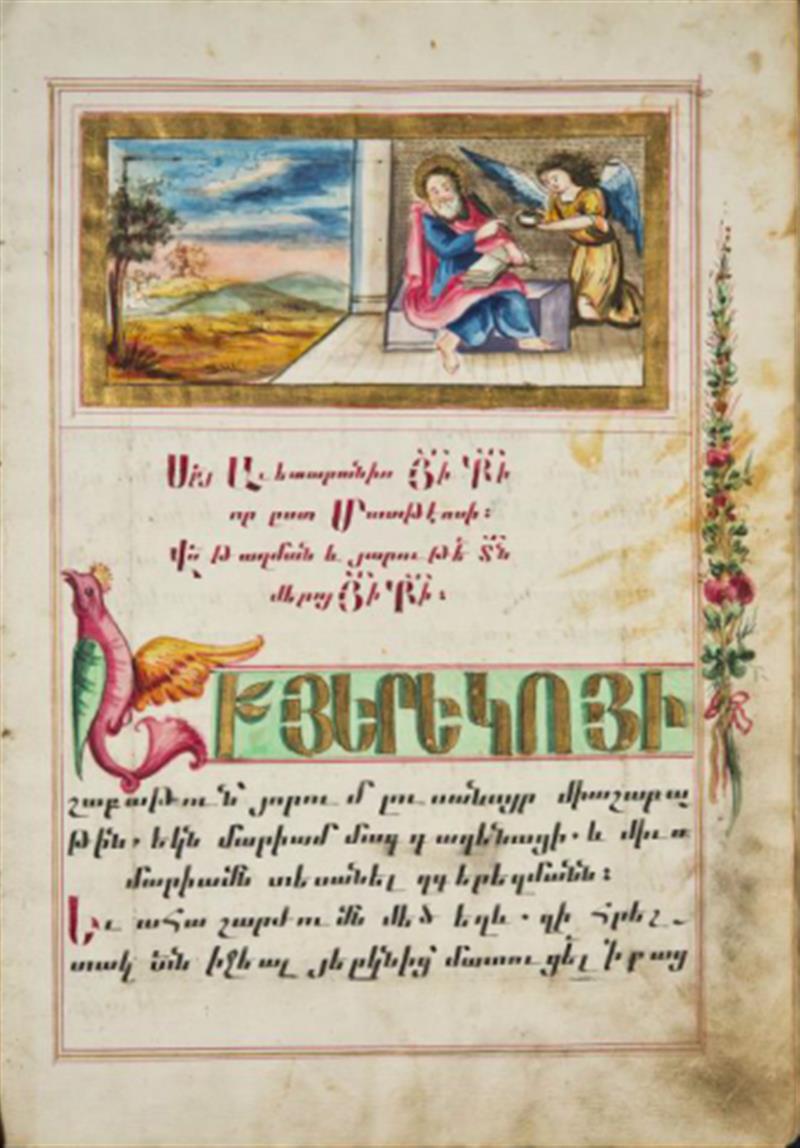 Սբյ Աւետարանիս Յի Քի
որ ըստ Մատթէոսի։
Վս թաղման և յարութե Տն
մերոյ Յի Քի։
ԵՒ ՅԵՐԵԿՈՅԻ
շաբաթուն՝ յորում լուսանայր միաշաբա
թին, եկն մարիամ մագդաղենացի. և միւս
մարիամն տեսանել զգերեզմանն։
Եւ ահա շարժումն մեծ եղև. զի հրեշ-
տակ տն իջեալ յերկնից՝ մատուցել ի բաց